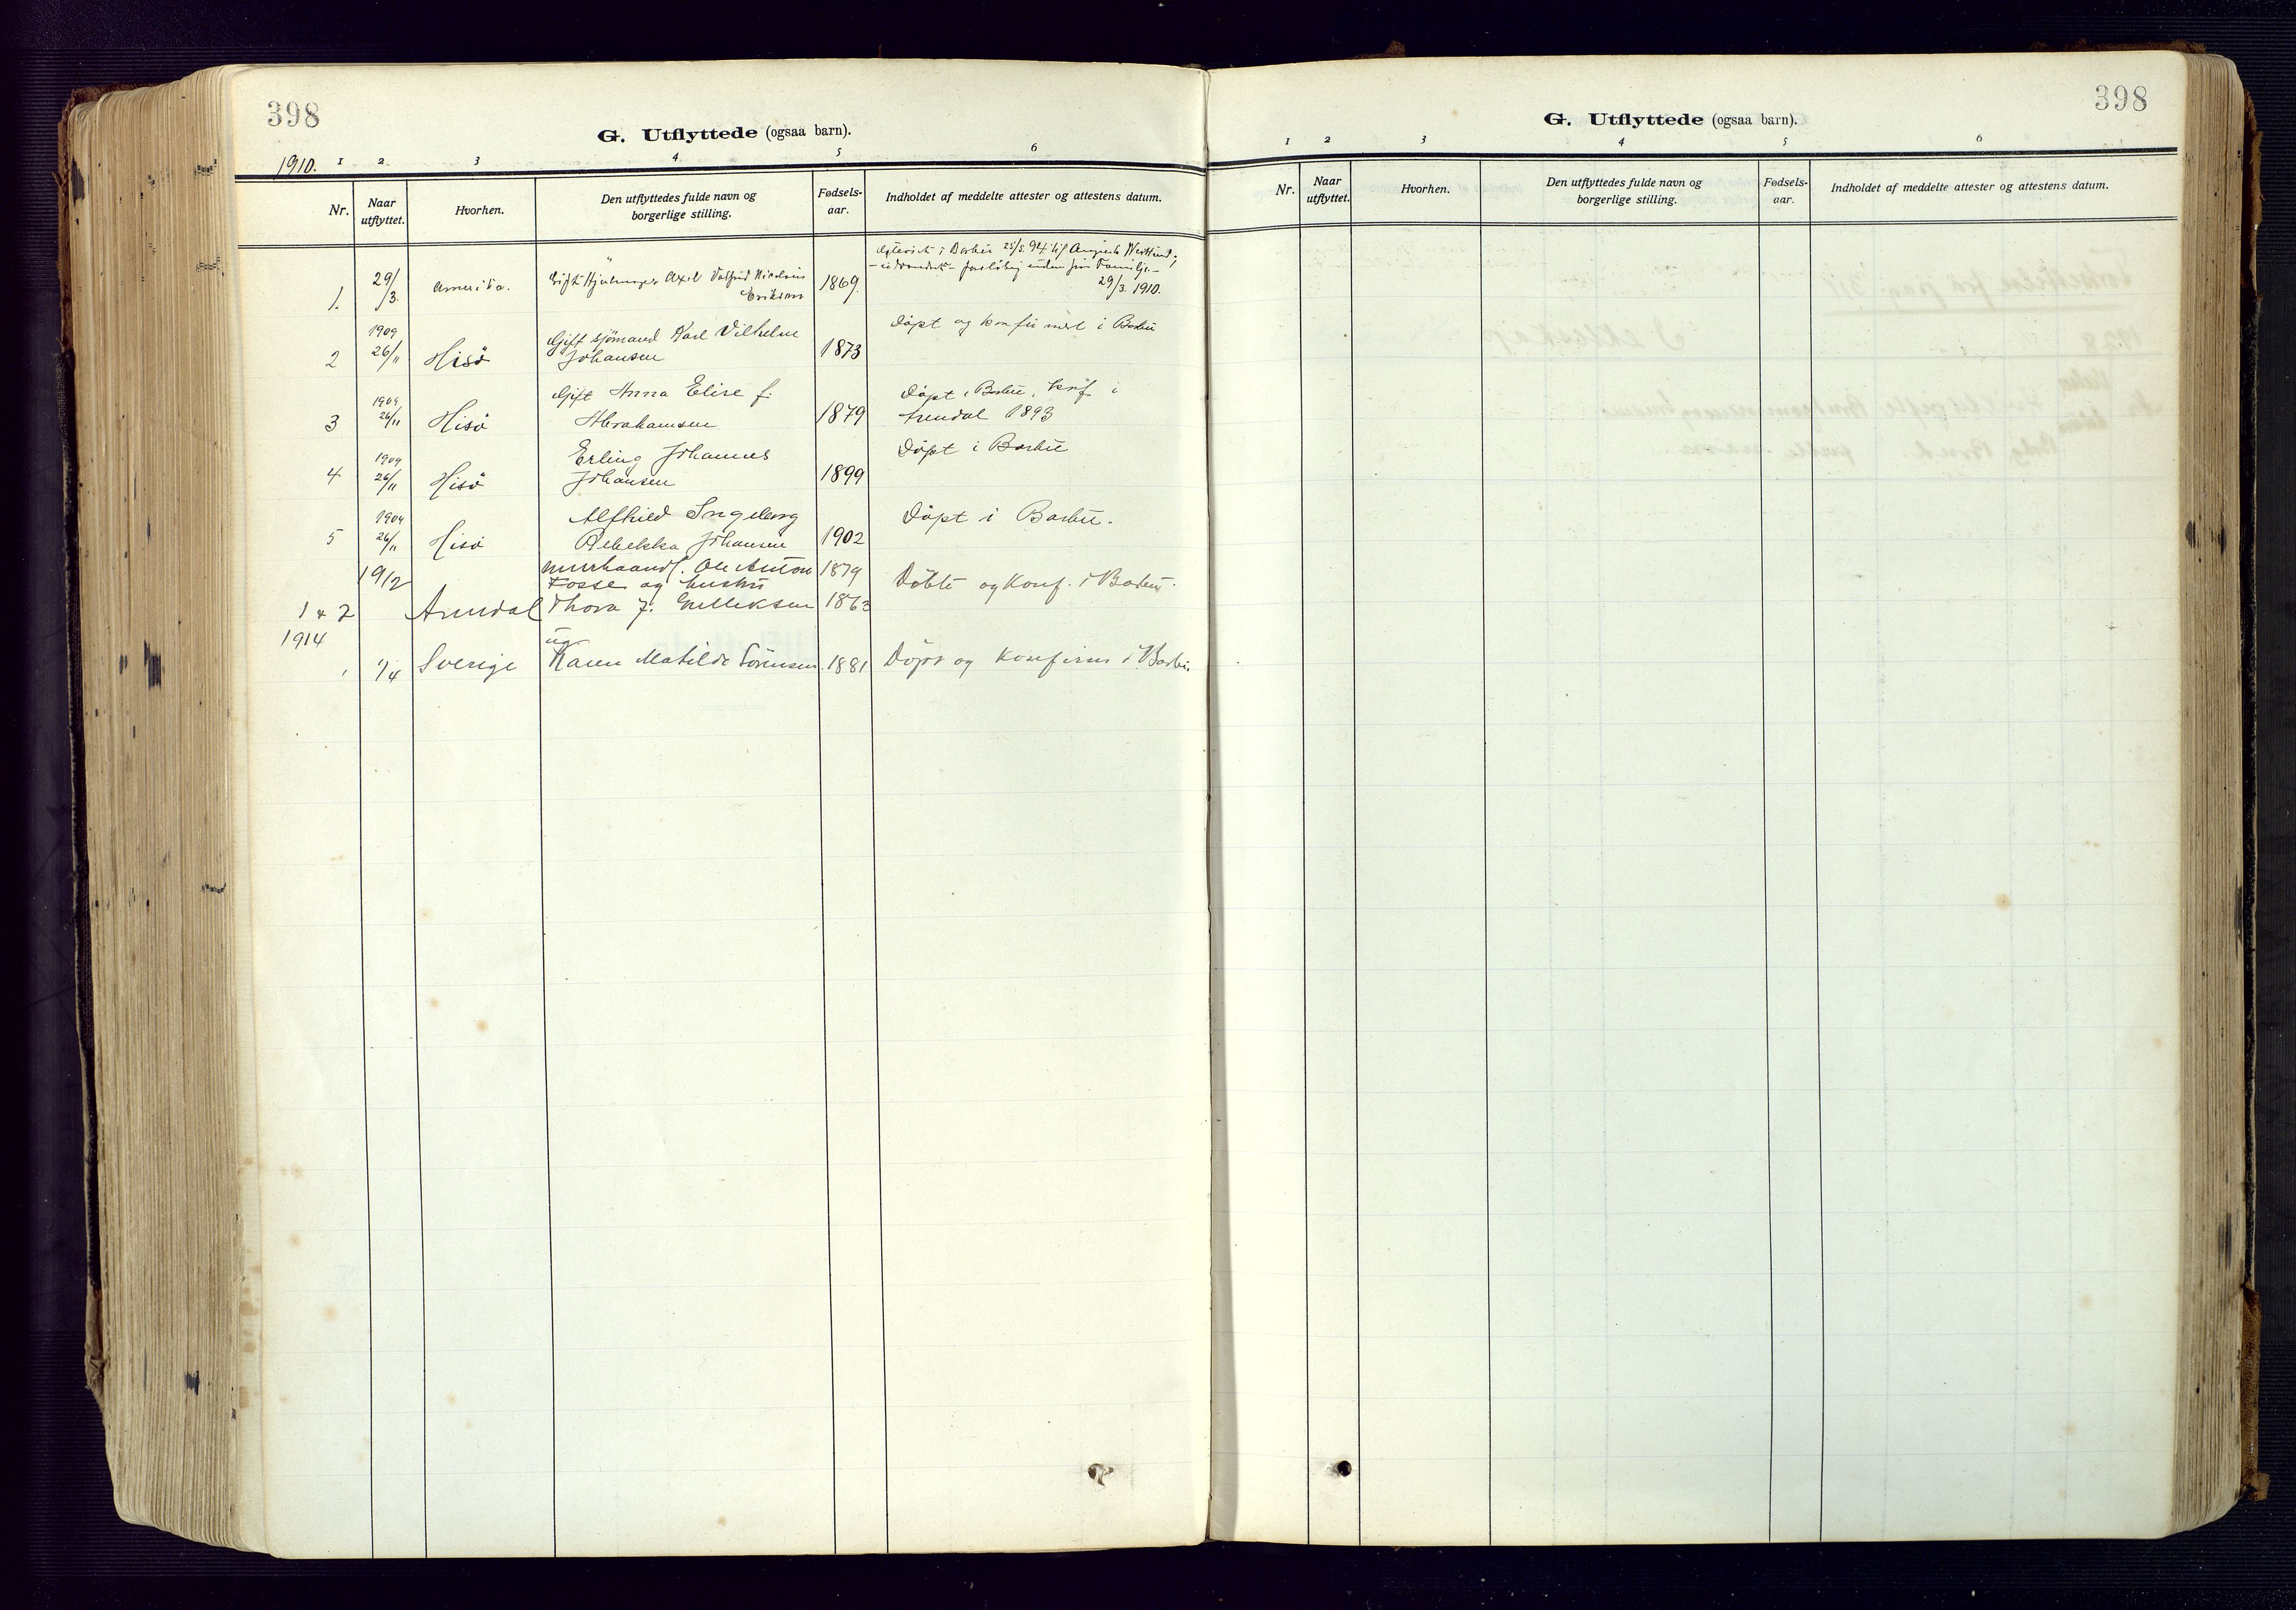 398
G. Utflyttede (ogsaa barn).
1910. 1 2 3 4 5 6
Nr. Naar utflyttet. Hvorhen. Den utflyttedes fulde navn og borgerlige stilling. Fødsels-aar. Indholdet af meddelte attester og attestens datum.
1. 29/3. Amerika. Gift Axel Valfrid Nicolaus Eriksen 1869. i Barbu 25/5 94 Augusta
foreløbig uden sin Familje.-
29/3 1910.
2 1909 26/11 Hisö Gift sjömand Karl Vilhelm Johansen 1873 Döpt og konfirmert i Barbu
3 1909 26/11 Hisö Gift Anna Elise f. Abrahamsen 1879 Döpt i Barbu, konf. i Arendal 1893
4 1909 26/11 Hisö Erling Johannes Johansen 1899 Döpt i Barbu
5 1909 26/11 Hisö Alfhild Ingeborg Rebekka Johansen 1902 Döpt i Barbu.
1 & 2 19/2 Arendal Ole Anton Fosse og hustru 1879
Thora f. Gulleksen 1863 Döbte og Konf. i Barbu.
1914
1 1/4 Sverige ug Karen Matilde Sörensen 1881 Döpt og Konfirm i Barbu.
398
G. Utflyttede (ogsaa barn).
1 2 3 4 5 6
Nr. Naar utflyttet. Hvorhen. Den utflyttedes fulde navn og borgerlige stilling. Fødsels-aar. Indholdet af meddelte attester og attestens datum.